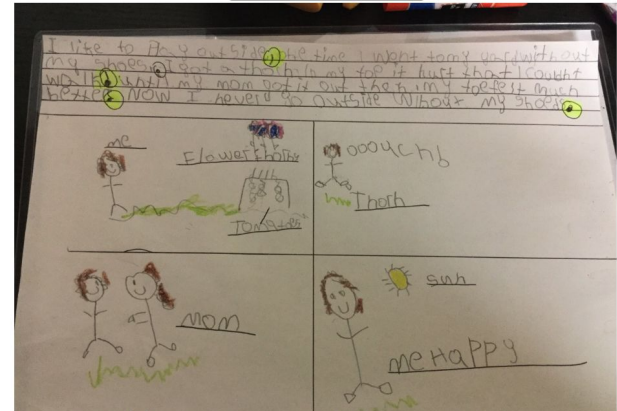 I like to Play outside. one time I went to my yard without
my shoes. I got a thorn in my toe it hurt that I coudnt
walk. until my mom got it out then my toe felt much
better. Now I never go outside without my shoes.
me
Flower
Tomatoes
ooouch
Thorn
mom
sun
me HAPPY